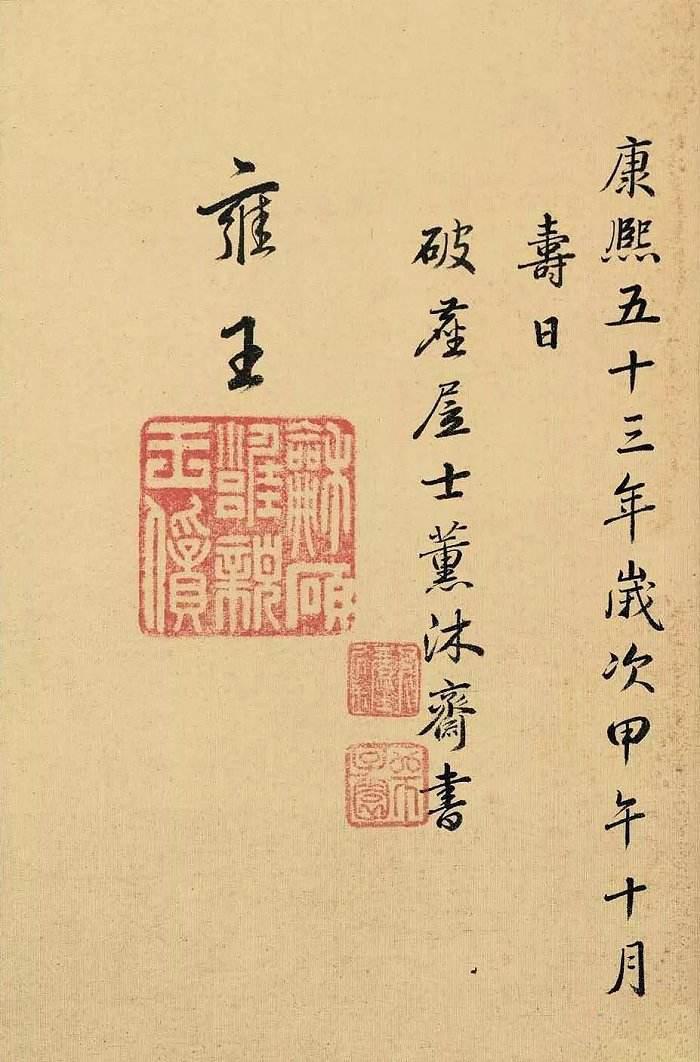 康熙五十三年歲次甲午十月
壽日
破塵居士薰沐齋書
雍王
龢碩
雝親
王